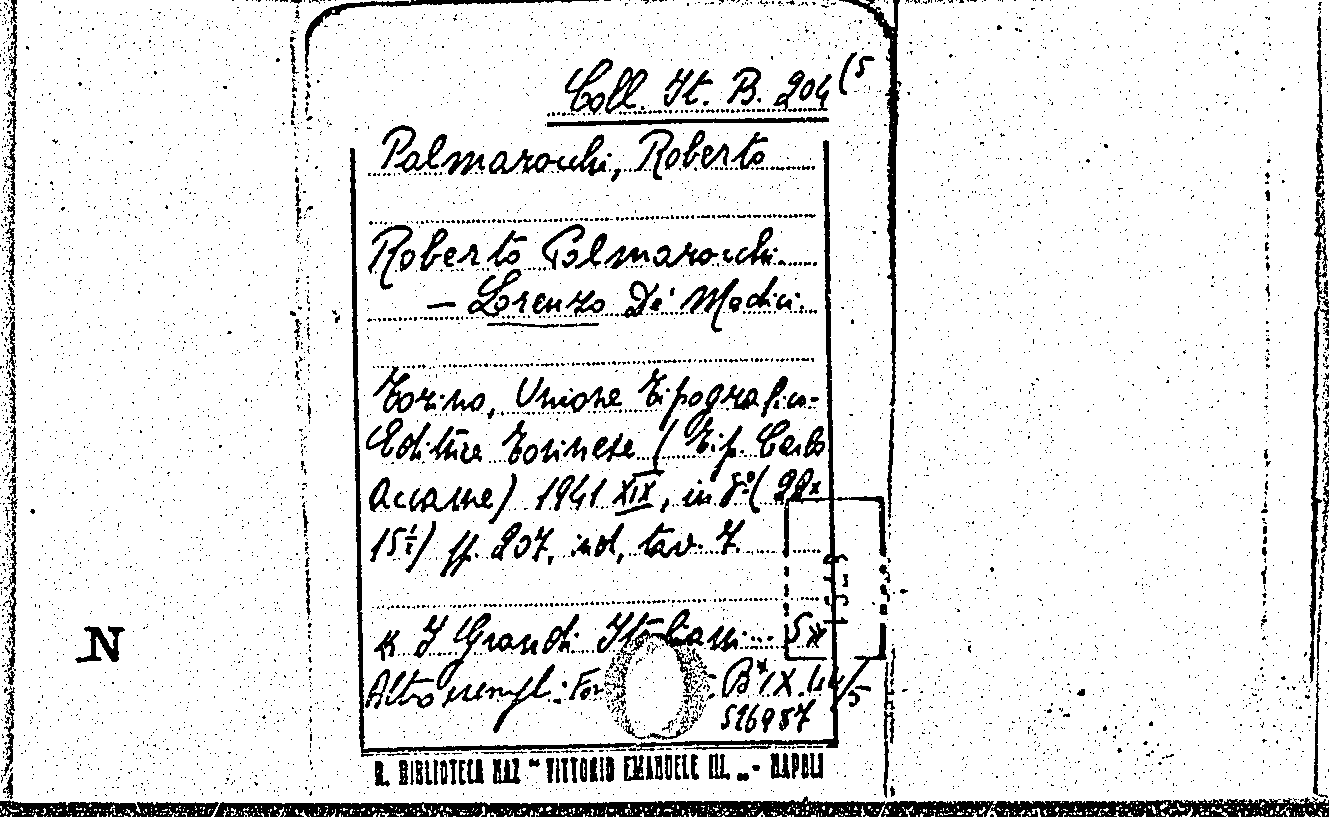 Coll. It. B. 204 (5
Palmarocchi, Roberto
Roberto Palmarocchi.
— Lorenzo De' Medici.
Torino, Unione Tipografico-
Editrice Torinese (Tip. Carlo
Accame) 1941 XIX, in 8.º (22x
15½) pp. 207, ind, tav. 7.
« I Grandi Italiani... 5 »
N
Altro esempl.: B* IX. 44/5
516987
R. BIBLIOTECA NAZ " VITTORIO EMANUELE III. „ - NAPOLI